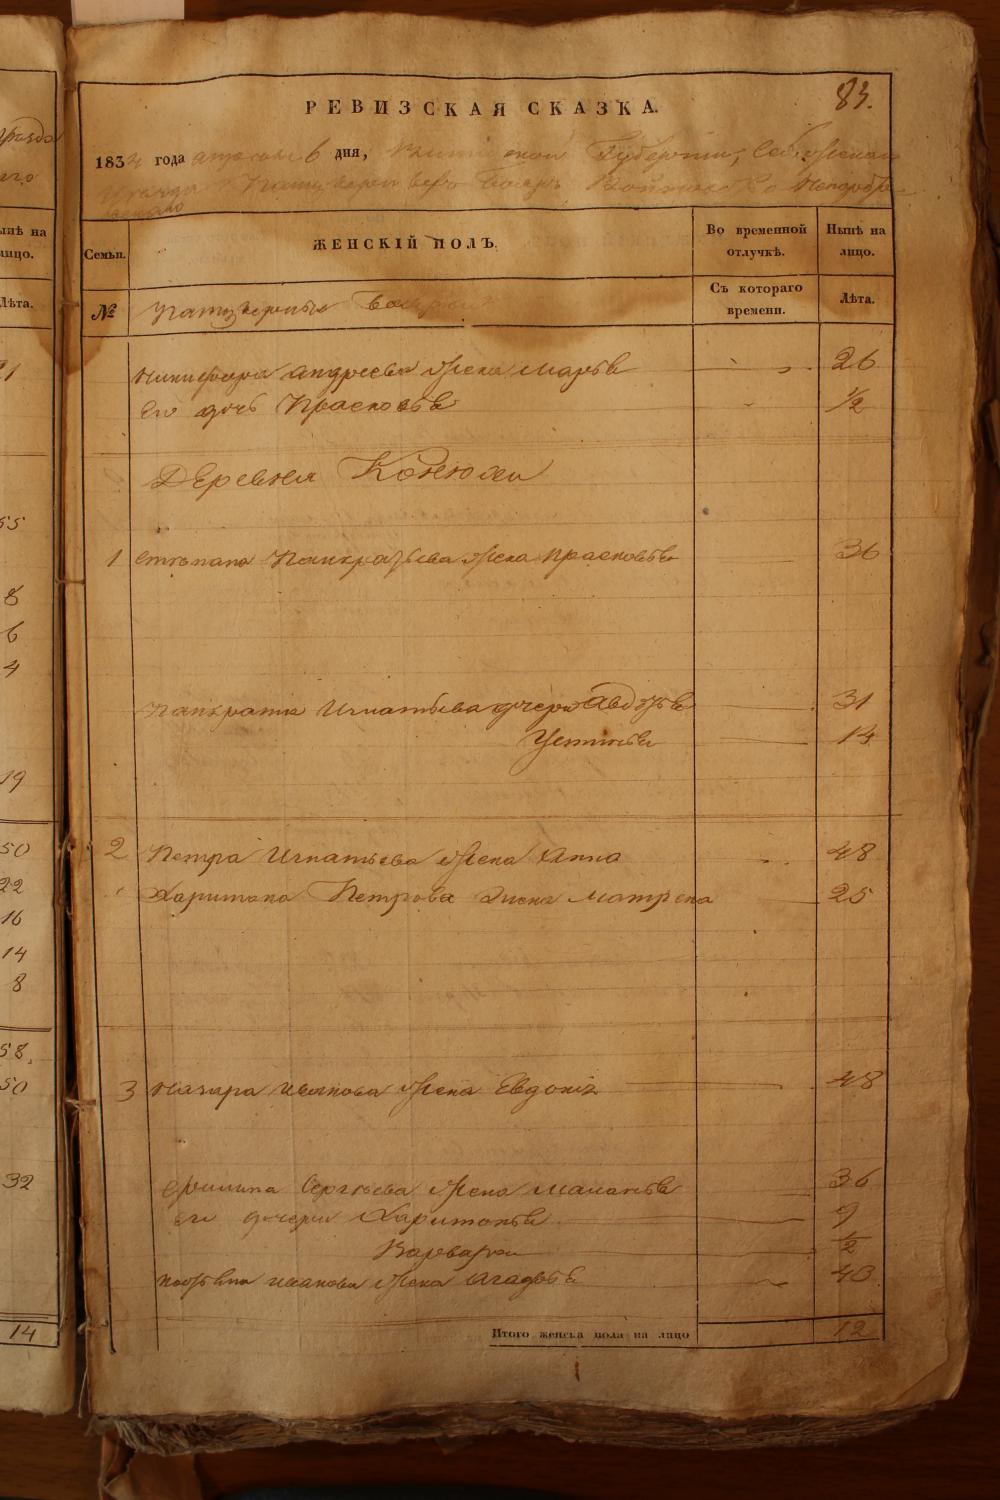 83.
РЕВИЗСКАЯ СКАЗКА.
1834 года апреля 6 дня, Витебской Губернии, Себежскаго
Уезда Панцернаго
Семьи. ЖЕНСКІЙ ПОЛЪ. Во временной отлучкѣ. Нынѣ на лицо.
№ Панцерныя бояре Съ котораго времени. Лѣта.
Никифора Андреева жена Марья 26
Его дочь Прасковья 1/2
Деревня
1 Степана Панкратьева жена Прасковья 36
Панкратія Игнатьева дочери Авдотья 31
Устинья 14
2 Петра Игнатьева жена Анна 48
Харитона Петрова жена Матрена 25
3 Назара Иванова жена Евдокія 48
Сергѣева жена Маланья 36
Его дочери Харитонья 9
Варвара 1/2
Иванова жена Агафья 40
Итого женска пола на лицо 12
ынѣ на
лицо.
Лѣта.
21
55
8
6
4
19
50
22
16
14
8
58.
50
32
14